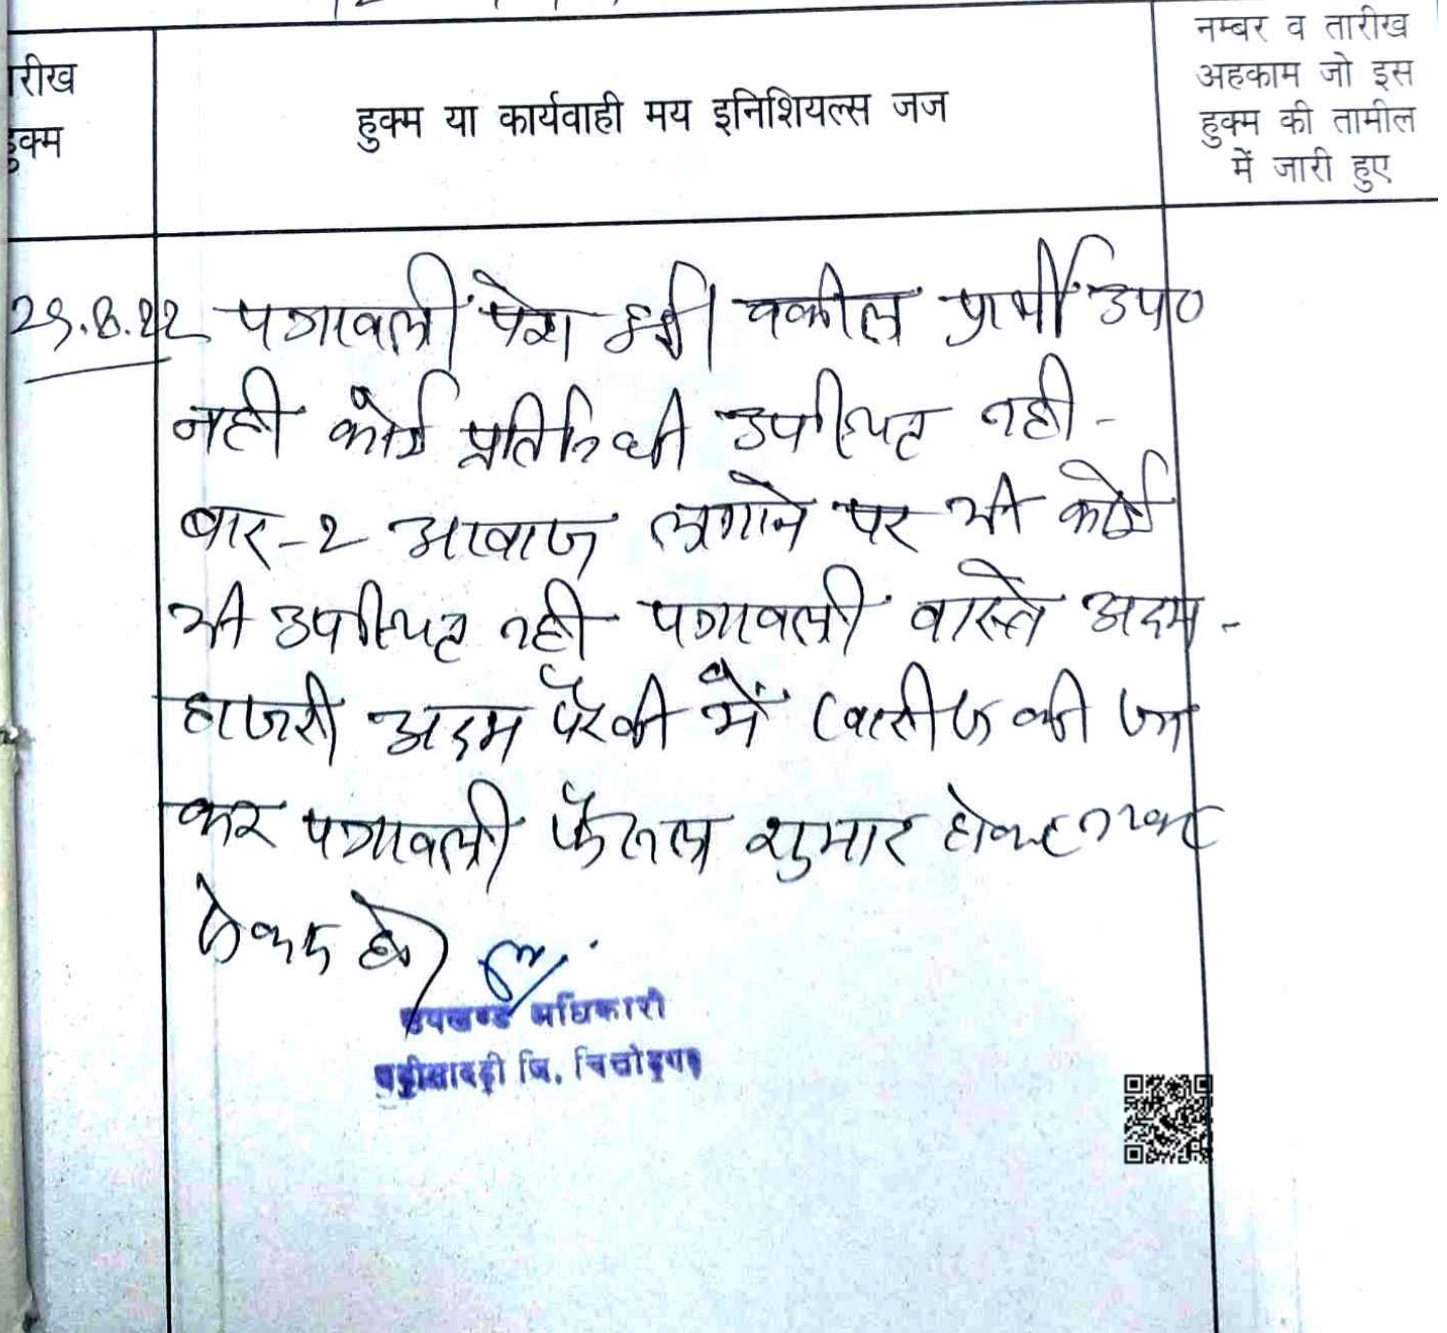 तारीख
हुक्म
हुक्म या कार्यवाही मय इनिशियल्स जज
नम्बर व तारीख
अहकाम जो इस
हुक्म की तामील
में जारी हुए
29.8.22 पत्रावली पेश हुई। वकील प्रार्थी उप०
नही कोई प्रतिनिधी उपस्थित नही -
बार-2 आवाज लगाने पर भी कोई
भी उपस्थित नही पत्रावली वास्ते अदम -
हाजरी अदम पैरवी में खारीज की जा
कर पत्रावली फैसल शुमार होकर नम्बर
से कम हो।
उपखण्ड अधिकारी
बड़ीसादड़ी जि. चित्तोड़गढ़